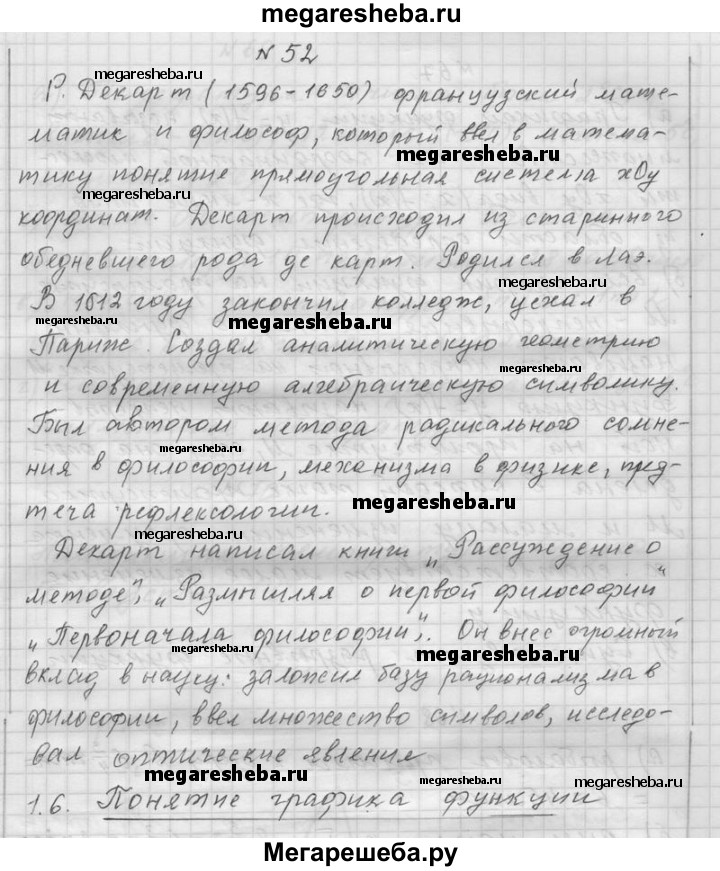 megaresheba.ru
№ 52
megaresheba.ru
Р. Декарт (1596-1650) французский мате-
матик и философ, который ввел в матема-
megaresheba.ru
тику понятие прямоугольная система хОу
megaresheba.ru
координат. Декарт происходил из старинного
обедневшего рода де карт. Родился в Лаэ.
megaresheba.ru
В 1612 году закончил колледж, уехал в
megaresheba.ru megaresheba.ru
Париж. Создал аналитическую геометрию
megaresheba.ru
и современную алгебраическую символику.
Был автором метода радикального сомне-
megaresheba.ru
ния в философии, механизма в физике, пред-
megaresheba.ru
теча рефлексологии.
megaresheba.ru
Декарт написал книги „Рассуждение о
методе", „Размышляя о первой философии"
„Первоначала философии". Он внес огромный
megaresheba.ru megaresheba.ru
вклад в науку: заложил базу рационализма в
философии, ввел множество символов, исследо-
вал оптические явления
megaresheba.ru megaresheba.ru megaresheba.ru
1.6. Понятие графика функции
megaresheba.ru
Мегарешеба.ру